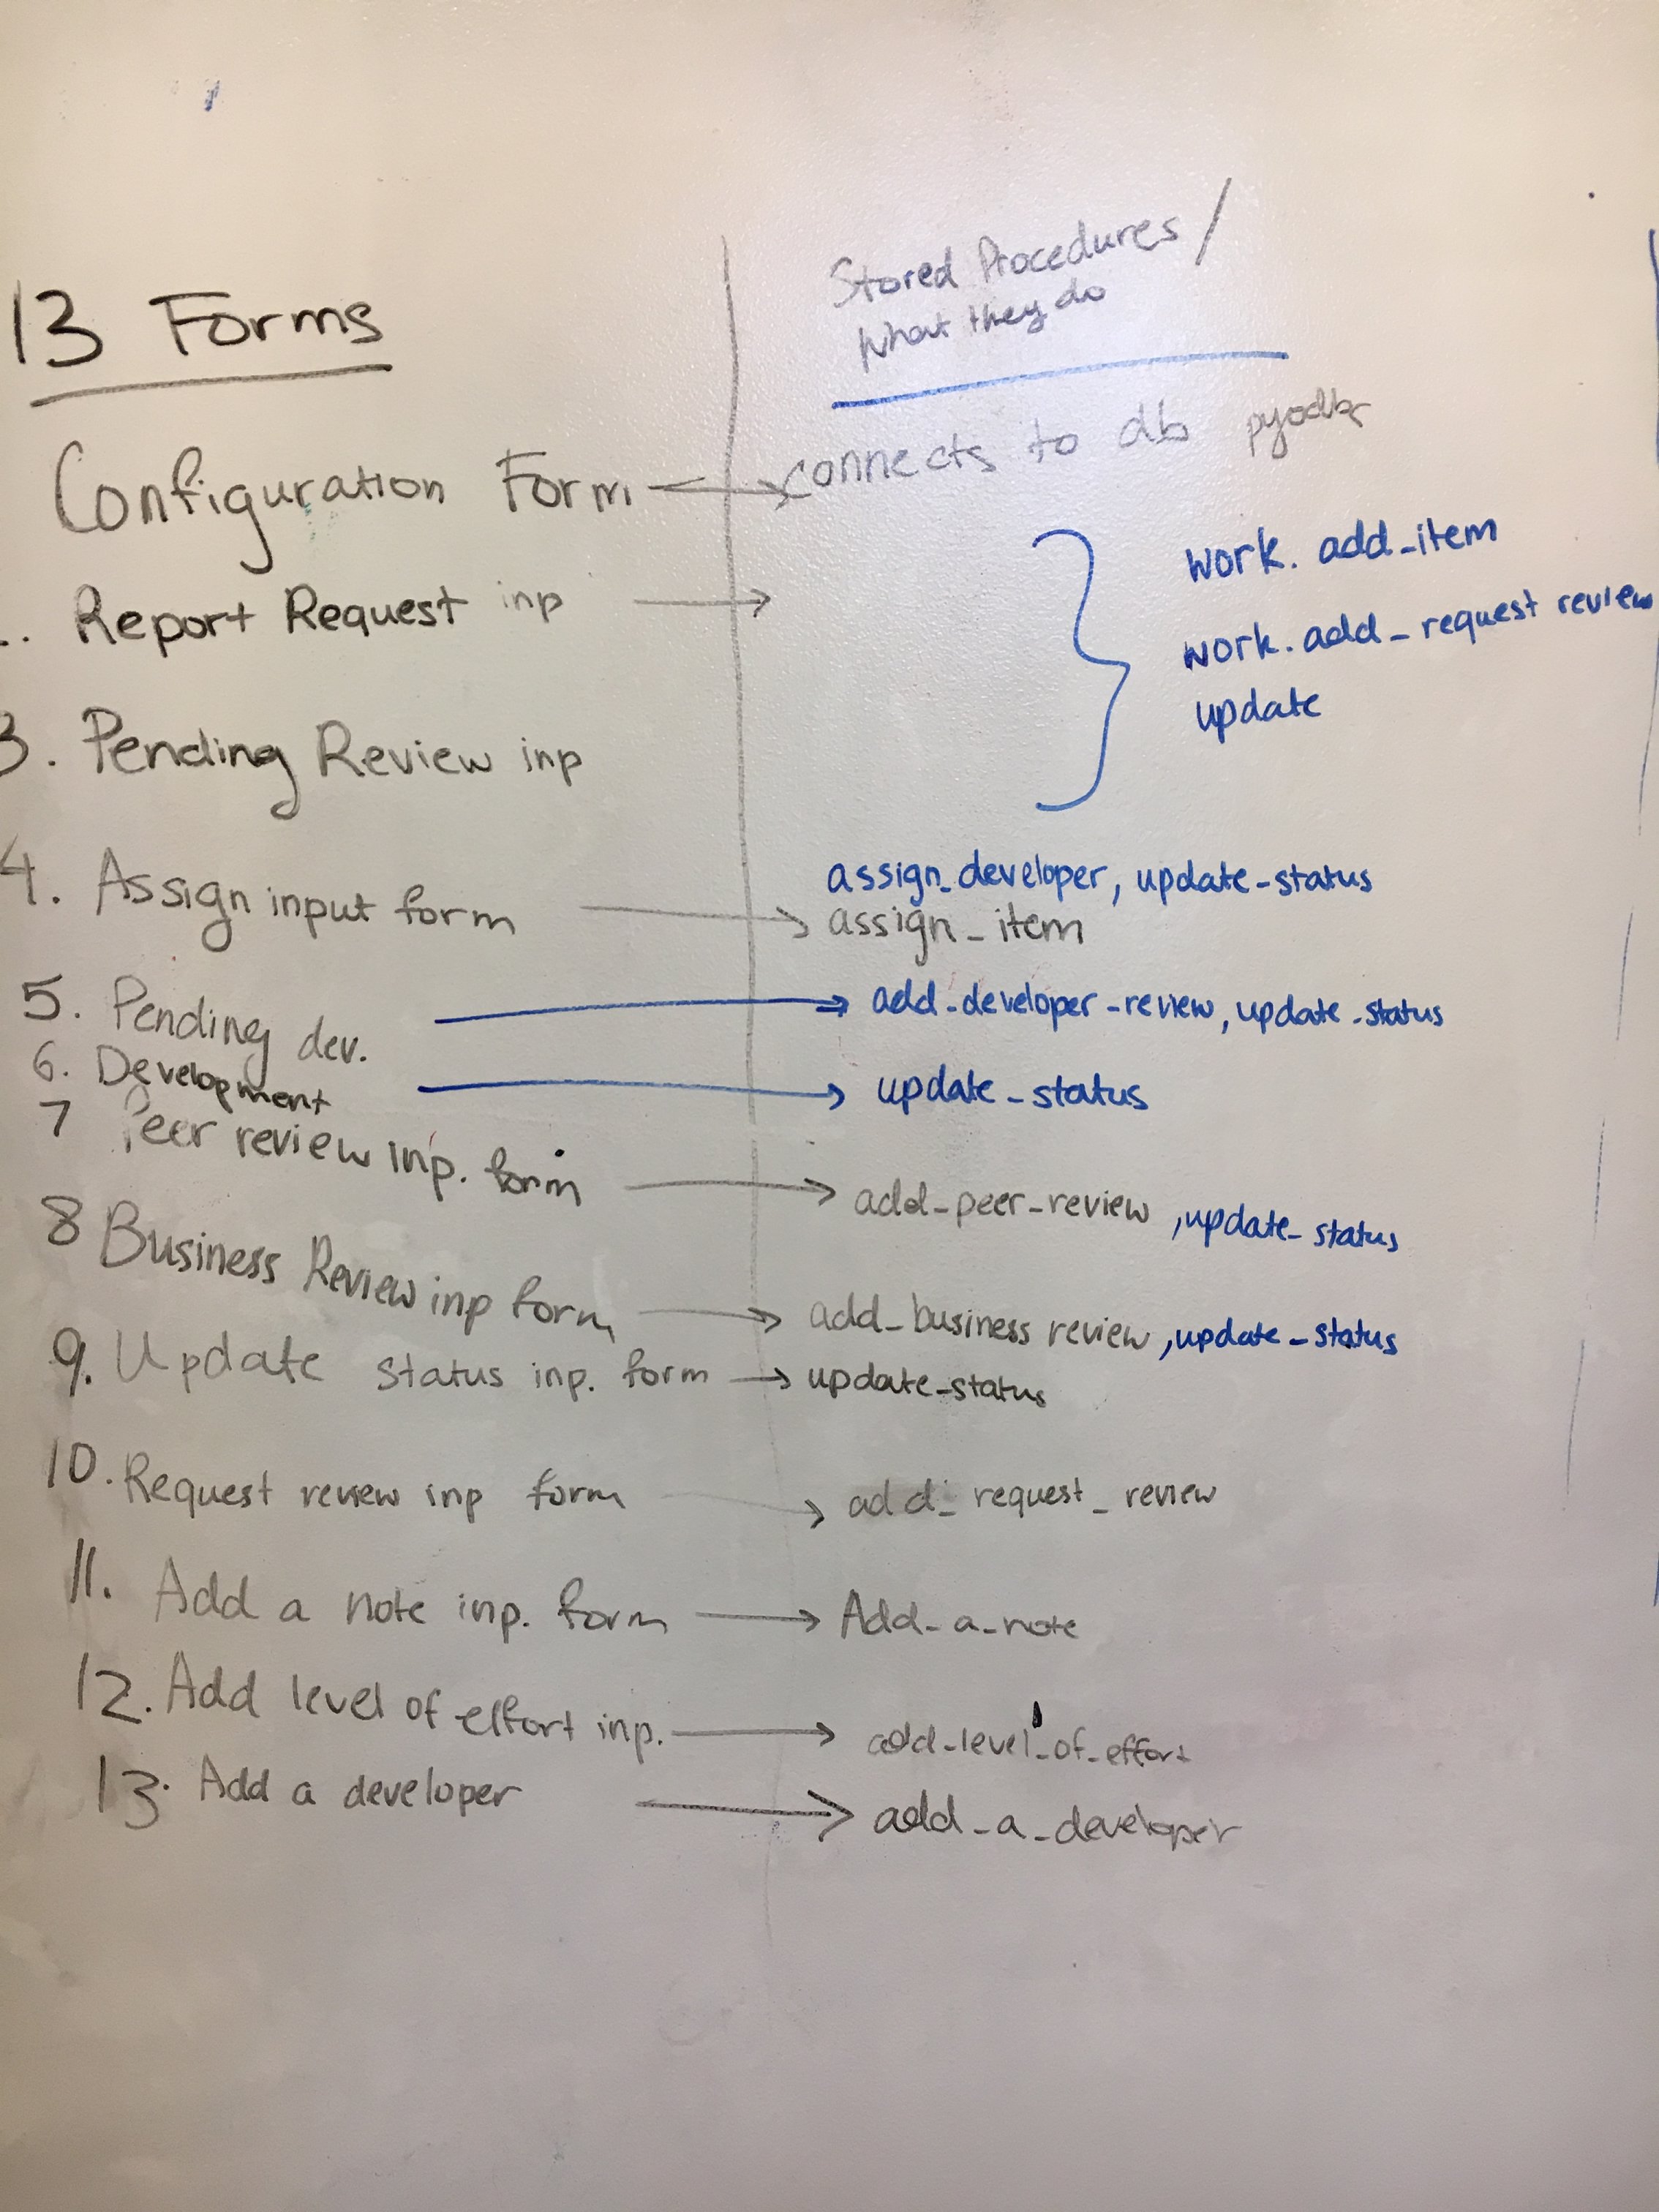 13 Forms
Stored Procedures /
what they do
Configuration Form
connects to db pyodbc
.. Report Request inp
work. add_item
work. add_request review
update
3. Pending Review inp
4. Assign input form
assign_developer, update-status
assign_item
5. Pending dev.
add-developer-review, update-status
6. Development
update_status
7 Peer review inp. form
add_peer_review , update_status
8 Business Review inp form
add_business review , update_status
9. Update status inp. form
update-status
10. Request review inp form
add_request_review
11. Add a note inp. form
Add_a_note
12. Add level of effort inp.
add_level_of_effort
13. Add a developer
add_a_developer